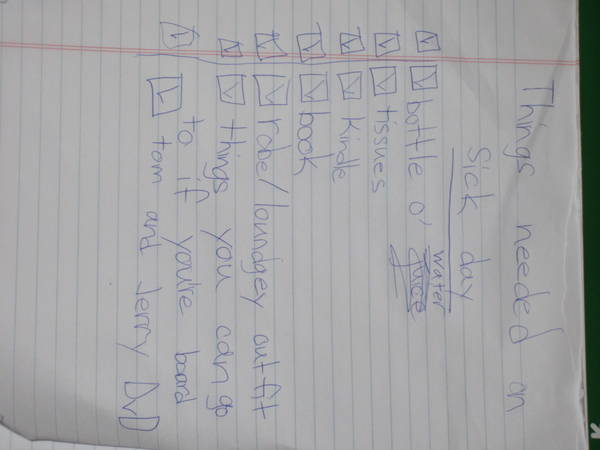 Things needed on
Sick day
water
bottle o' juice
tissues
Kindle
book
robe/loundgey outfit
things you can go
to if you're board
tom and Jerry DvD